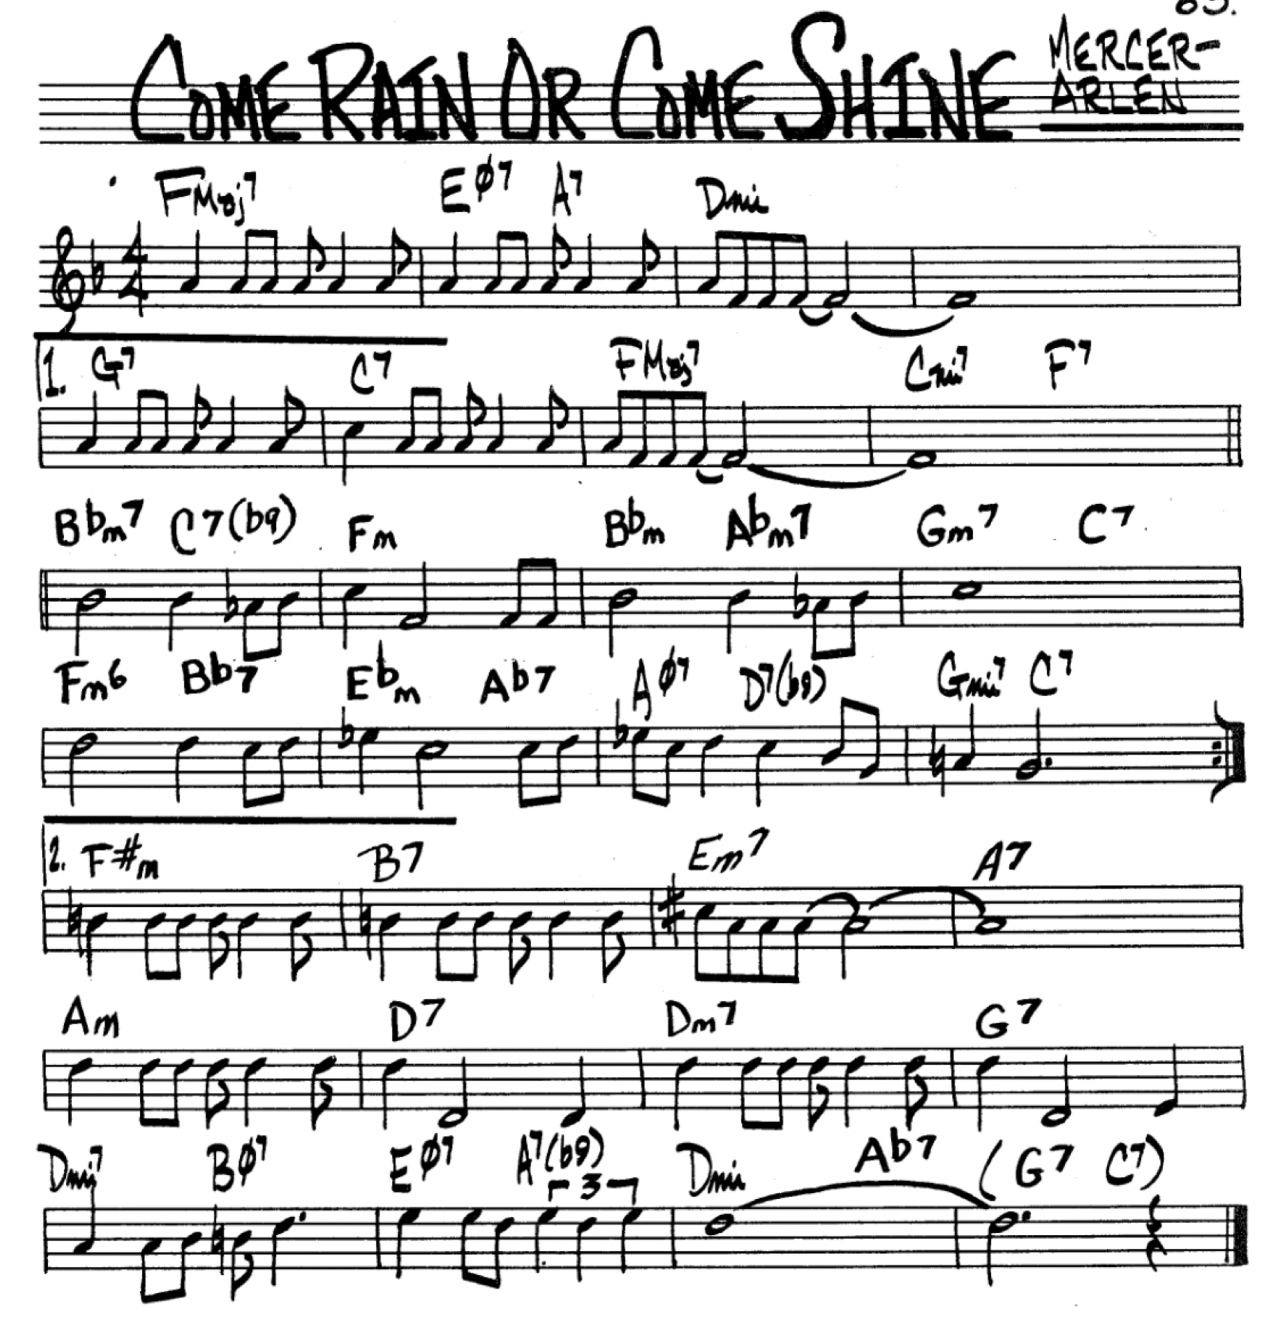 83.
COME RAIN OR COME SHINE
MERCER-
ARLEN
FMaj7 Eø7 A7 Dmi
4
4
1. G7 C7 FMaj7 Cmi7 F7
Bbm7 C7(b9) Fm Bbm Abm7 Gm7 C7
Fm6 Bb7 Ebm Ab7 Aø7 D7(b9) Gmi7 C7
2. F#m B7 Em7 A7
Am D7 Dm7 G7
Dmi7 Bø7 Eø7 A7(b9) Dmi Ab7 (G7 C7)
3